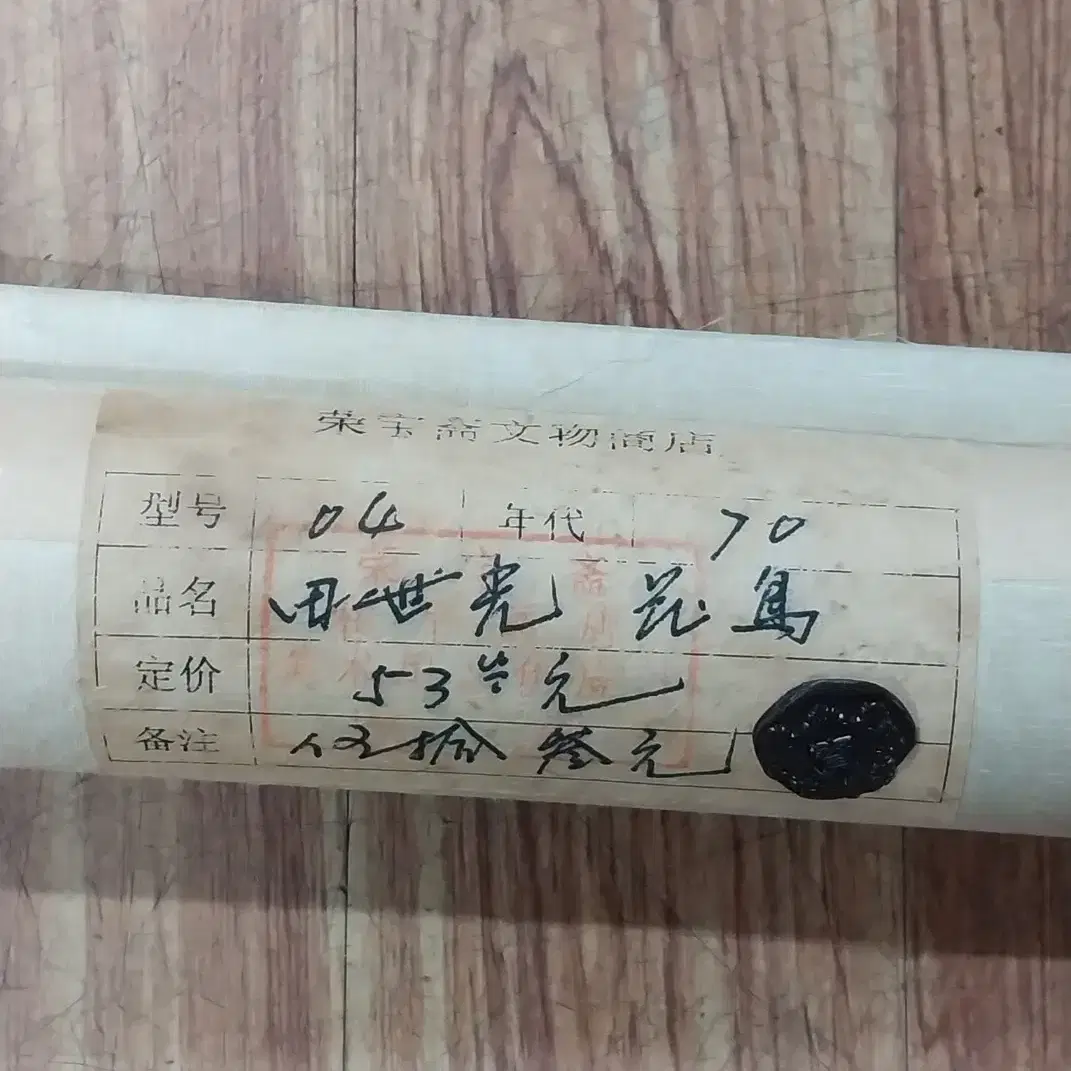 荣宝斋文物商店
型号 04 年代 70
品名 田世光 花鸟
定价 53 元
备注 伍拾叁元